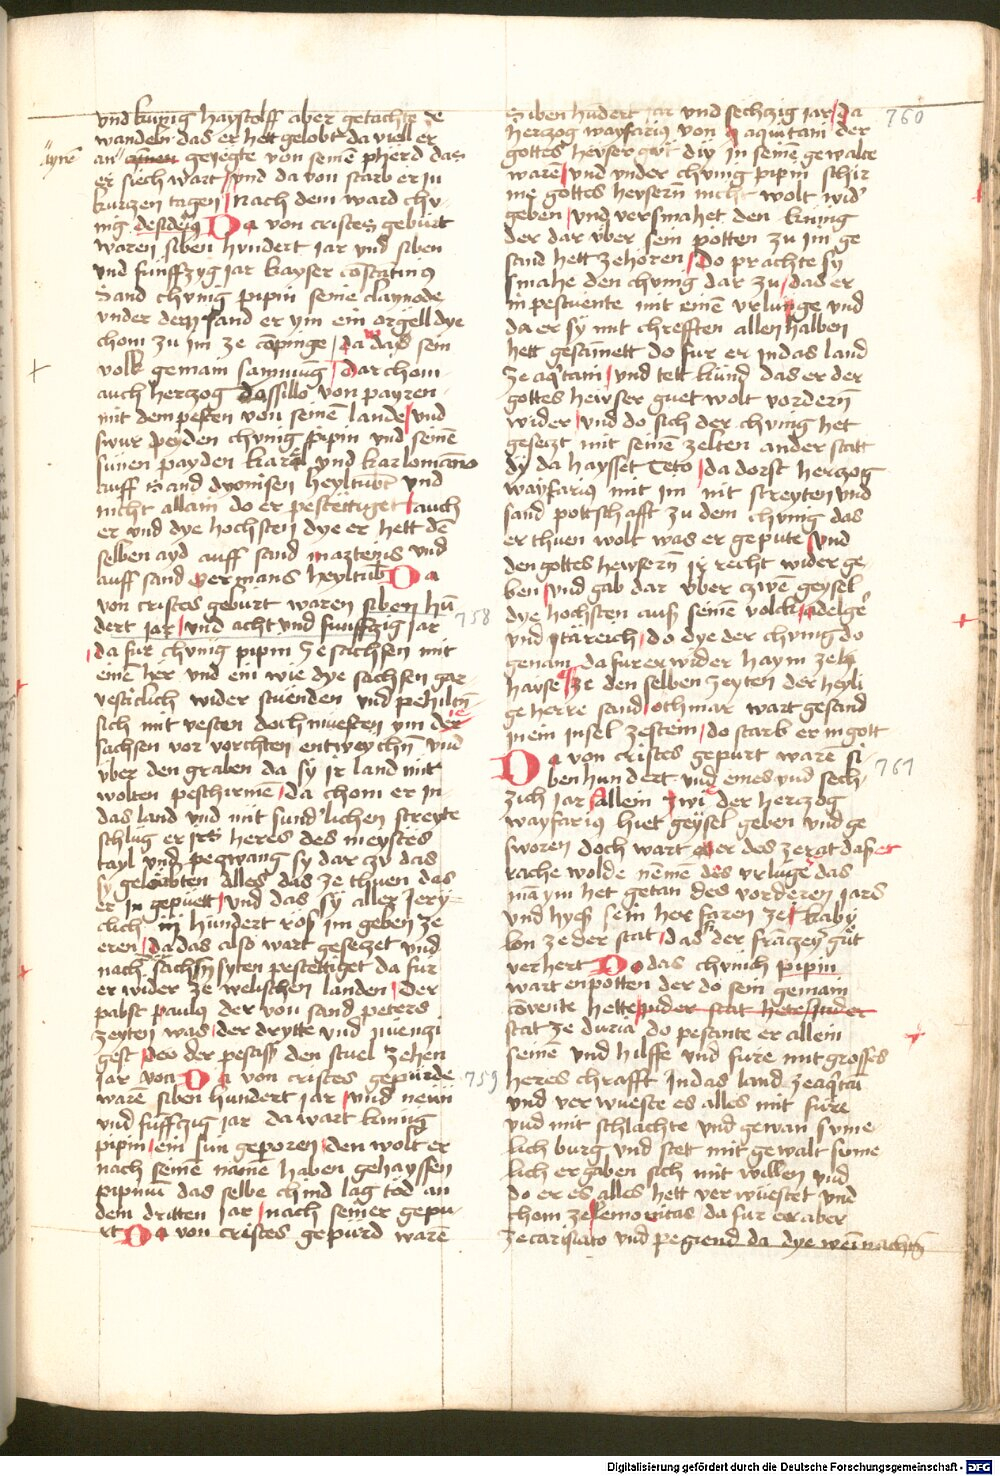 vnd kunig haystolff aber getachte ze
wandeln das er hett gelobt da viell er
an ainen geyegte von seinē pherd das
er siech wart / vnd da von starb er in
kurczen tagen / nach dem ward chv
nig desideriꝯ Da von cristes geburt
waren siben hvndert jar vnd siben
vnd funffzyg jar kayser costatinꝯ
Sand chvnig pipin seine claynode
vnder dem sand er ym ein orgell dye
chom zu im ze copinge / da das sein
volk gemain samnūg / dar chom
auch herczog dassillo von payren
mit dem pesten von seinē lande / vnd
swur peyden chvnig pipin vnd seinē
sünen payden karel vnd karlomāno
auff Sand dyonisen heyltubt vnd
nicht allain do er pestettiget / auch
er vnd dye hochsten dye er hett dē
selben ayd auff sand marteins vnd
auff sand germans heyltub Da
von cristes geburt waren siben hū
dert jar / vnd acht vnd funffzig jar
758
da fur chvnig pipin ze sachsen mit
einē her vnd ein wie dye sachsen gar
vesticlich wider stuenden vnd pehiltn̄
sich mit vesten doch muesten ym der
sachsen vor vorchten entweychn̄ vnd
vber den graben da sy ir land mit
wolten peschirme / da chom er in
das land vnd mit sund'lichen streyte
schlug er irs heres des meystes
tayl vnd pegwang sy dar zu das
sy gelobten alles das ze thuen das
er in gepuett / vnd das sy aller jery
clich iii hundert ros im geben ze
eren / da das also wart geseczet vnd
nach sachsn̄ syten pestettiget da fur
er wider ze welischen landen / der
pabst paulus der von sand peters
zeyten was / der drytte vnd nuenczi
gest / der pesass den stuel zehen
jar von Da von cristes gepurde
759
warē siben hundert jar / vnd neun
vnd fuffczig jar da wart kunig
pipin / ein sun geporen / den wolt er
nach seinē namē haben gehayssen
pipinū das selbe chind lag tod an
dem dritten jar / nach seiner gepu
rt Da von cristes gepurd warē
Siben hūdert jar vnd sechzig jar / da
760
herczog wayfariꝯ von aquitani der
gottes hevser gūt diy in seinē gewalte
ware / vnd vnder chvnig pipin schir
me gottes hevsern̄ nicht wolt wid'
geben / vnd versmahet den kunig
der dar vber sein potten zu im ge
sand hett zehoren / Do prachte sy
smahe den chvnig dar zu / das er
in pestuente mit einē vrluge vnd
da er sy mit chrefften allen halben
hett gesāmett do fur er in das land
ze aq'tani / vnd tett kund das er der
gottes hewser guet wolt vordern̄
wider / vnd do sich der chvnig het
gesetzt mit seinē zelten ander statt
dy da haysset Teto / da dorst herczog
wayfariꝯ mit im nit streyten vnd
sand pottschafft zu dem chvnig das
er thuen wolt was er gepute / vnd
den gottes hewsern̄ ir recht wider ge
ben / vnd gab dar vber zwē geysel
dye hochsten aus seinē volck / adelge'
vnd ytareich / do dye der chvnig do
genam da fur er wider haym ze
hause / ze den selben zeyten der heyli
ge herre sand othmar wart gesand
in ein insel ze stein / do starb er in gott
Da von cristes gepurt warē si
761
ben hundert vnd eines vnd sech
zich jar / allein wie der herczog
wayfariꝯ hiet geysel geben vnd ge
sworen doch wart er des ze rat das er
rache wolde nemē des vrluge das
mā ym het getan des vorderen jars
vnd hyes sein her faren ze kaby
lon ze der stat / das der franzey gut
verhert Do das chvnich pipin
wart enpotten der do sein gemain
cōvente hette in der stat hete in der
stat ze duria do pesante er allein
seinē vnd hilffe vnd fure mit grosses
heres chrafft in das land ze aq'tā
vnd verwueste es alles mit fure
vnd mit schlachte vnd gewan sume
lich burg vnd stet mit gewalt sume
lich ergaben sich mit willen vnd
do er es alles hett verwüestet vnd
chom ze lemouitas / da fur er aber
ze carisiaco vnd pegiend da dye weinachtn̄
Digitalisierung gefördert durch die Deutsche Forschungsgemeinschaft - DFG